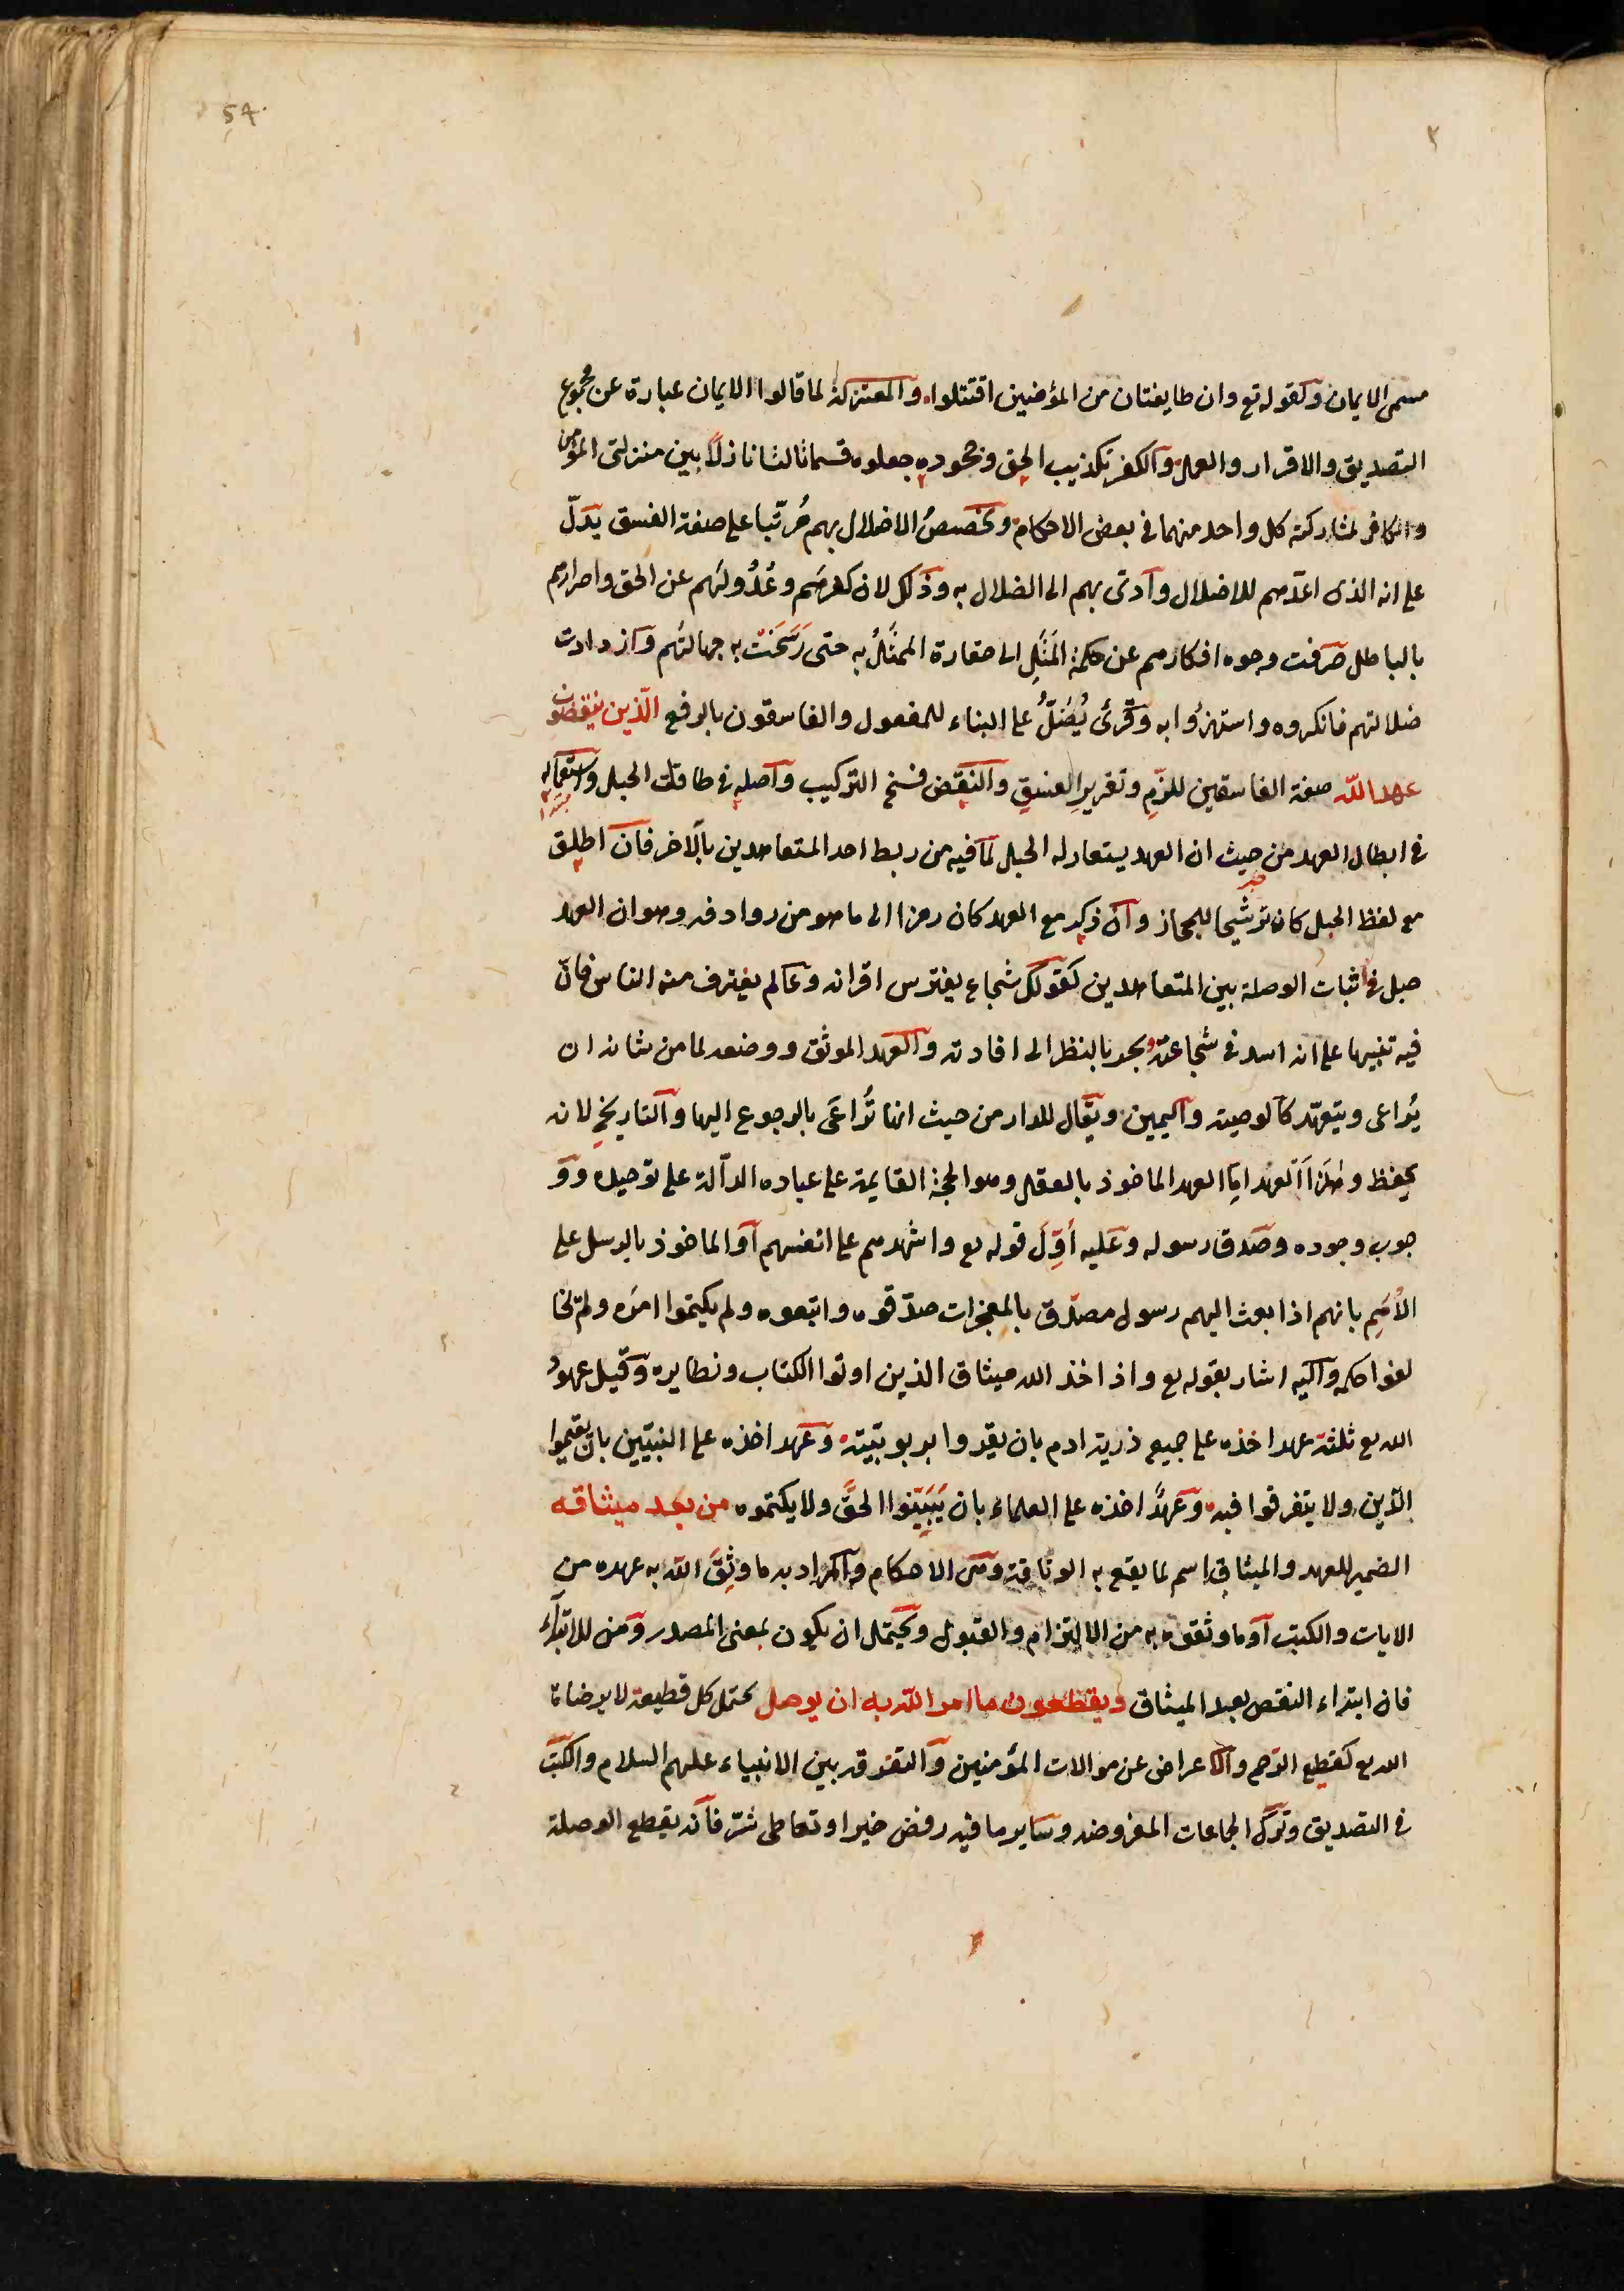 54
مسمى الايمان وكقوله تع وان طايفتان من المؤمنين اقتتلوا والمعتزلة لما قالوا الايمان عبارة عن مجموع
التصديق والاقرار والعمل والكفر تكذيب الحق وجحوده جعلوه قسما ثالثا نازلاً بين منزلتي المؤمن
والكافر لمشاركته كل واحد منهما في بعض الاحكام وتخصيصُ الاضلال بهم مُرتّبا على صفة الفسق يدلّ
على انه الذى اعدّهم للاضلال وادّى بهم الى الضلال به وذلك لان كفرهَم وعُدُولَهم عن الحق واصرارهم
بالباطل صَرفت وجوه افكارهم عن حكمة المَثَلِ الى حقارة الممثَّلُ به حتى رَسَخَتْ به جهالتُهم وازدادت
ضلالتهم فانكروه واستهزؤُا به وقُرئ يُضَلُّ على البناء للمفعول والفاسقون بالرفع الّذين ينقضون
عهد اللّه صفة الفاسقين للذّمِ وتقريرِ الفسقِ والنّقض فسخ التركيب واصله في طاقات الحبل واستعماله
في ابطال العهد من حيث ان العهد يستعار له الحبل لما فيه من ربط احد المتعاهدين بالاخر فان اطلق
مع لفظ الحبل كان ترشيحا للمجاز وان ذكر مع العهد كان رمزا الى ما هو من روادفه وهو ان العهد
حبل في اثبات الوصلة بين المتعاهدين كقولك شجاع يفترس اقرانه وعالم يغترف منه الناس فانّ
فيه تنبيها على انه اسد في شجاعته وبحر بالنظر الى افادته والعهد الموثق ووضعه لما من شانه ان
يُراعى ويتعهّد كالوصية واليمين ويقال للدار من حيث انها تُراعَى بالرجوع اليها والتاريخِ لانه
يحفظ وهٰذَا اَلعهد امّا العهد الماخوذ بالعقل وهو الحجة القايمة على عباده الدالّة على توحيده وو
جوب وجوده وصدق رسوله وعليه اُوِّلَ قوله تع واشهدهم على انفسهم اوالماخوذ بالرسل على
الاُمَمِ بانهم اذا بعث اليهم رسول مصدّق بالمعجزات صدّقوه واتبعوه ولم يكتموا امرَه ولم يخا
لفوا حكمه واليه اشار بقوله تع واذ اخذ الله ميثاق الذين اوتوا الكتاب ونظايره وقيل عهودُ
الله تع ثلثة عهد اخذه على جميع ذرية ادم بان يقروا بربوبيّته وعهد اخذه على النبيّين بان يقيموا
الدّين ولا يتفرقوا فيه وعهدٌ اخذه على العلماء بان يَبَيِّنوا الحقَّ ولا يكتموه من بعد ميثاقه
الضمير للعهد والميثاق اسم لما يقع به الوثاقة وهى الاحكام والمراد به ما وثِقَ الله به عهده من
الايات والكتب اوما وثقوه به من الالتزام والقبول ويحتمل ان يكون بمعنى المصدر ومن للابتداء
فان ابتداء النقض بعد الميثاق ويقطعون ما امر اللّه به ان يوصل يحتمل كل قطيعة لا يرضاها
الله تع كقطع الرحم والاعراض عن موالات المؤمنين والتفرقة بين الانبياء عليهم السلام والكتب
في التصديق وترك الجماعات المفروضه وساير ما فيه رفض خير او تعاطى شرّ فانه يقطع الوصلة